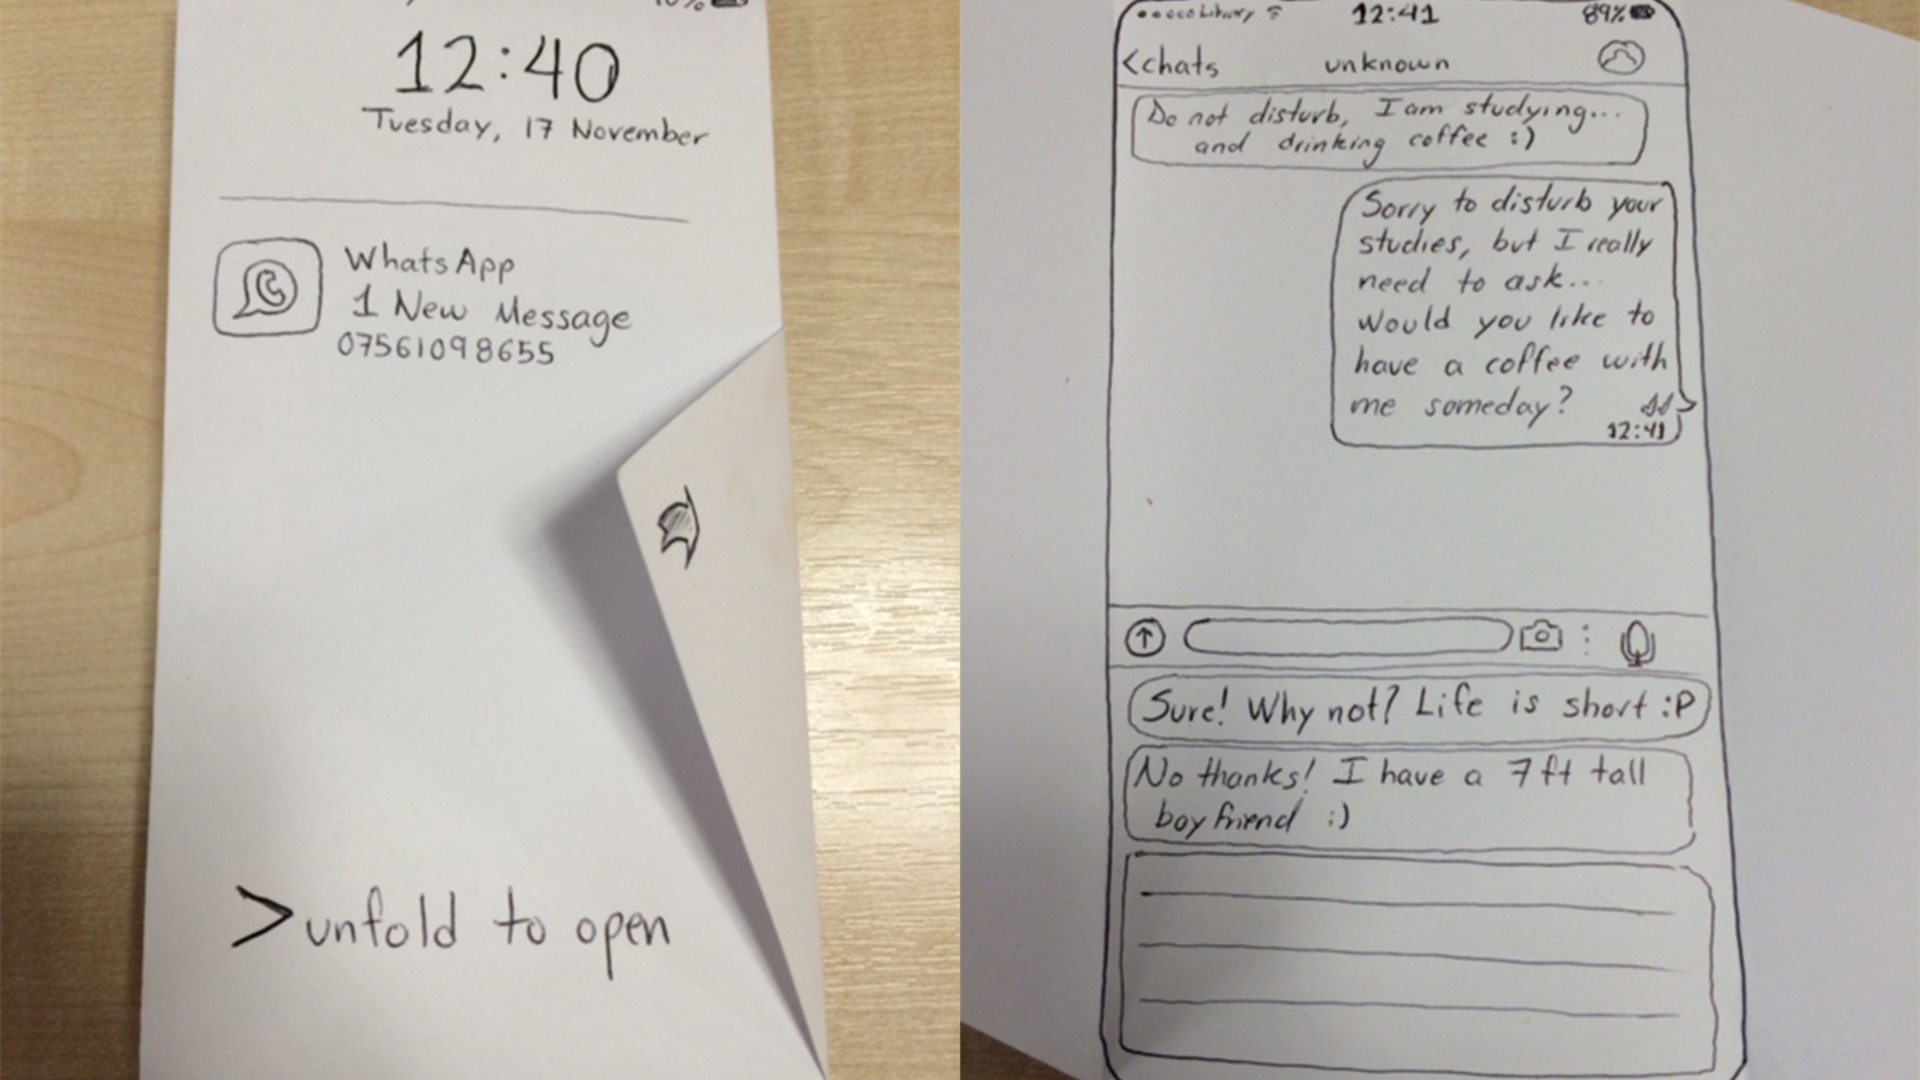 12:40
Tuesday, 17 November
WhatsApp
1 New Message
07561098655
>unfold to open
Library 12:41 89%
<chats unknown
Do not disturb, I am studying...
and drinking coffee :)
Sorry to disturb your
studies, but I really
need to ask...
Would you like to
have a coffee with
me someday?
12:41
Sure! Why not? Life is short :P
No thanks! I have a 7ft tall
boyfriend :)